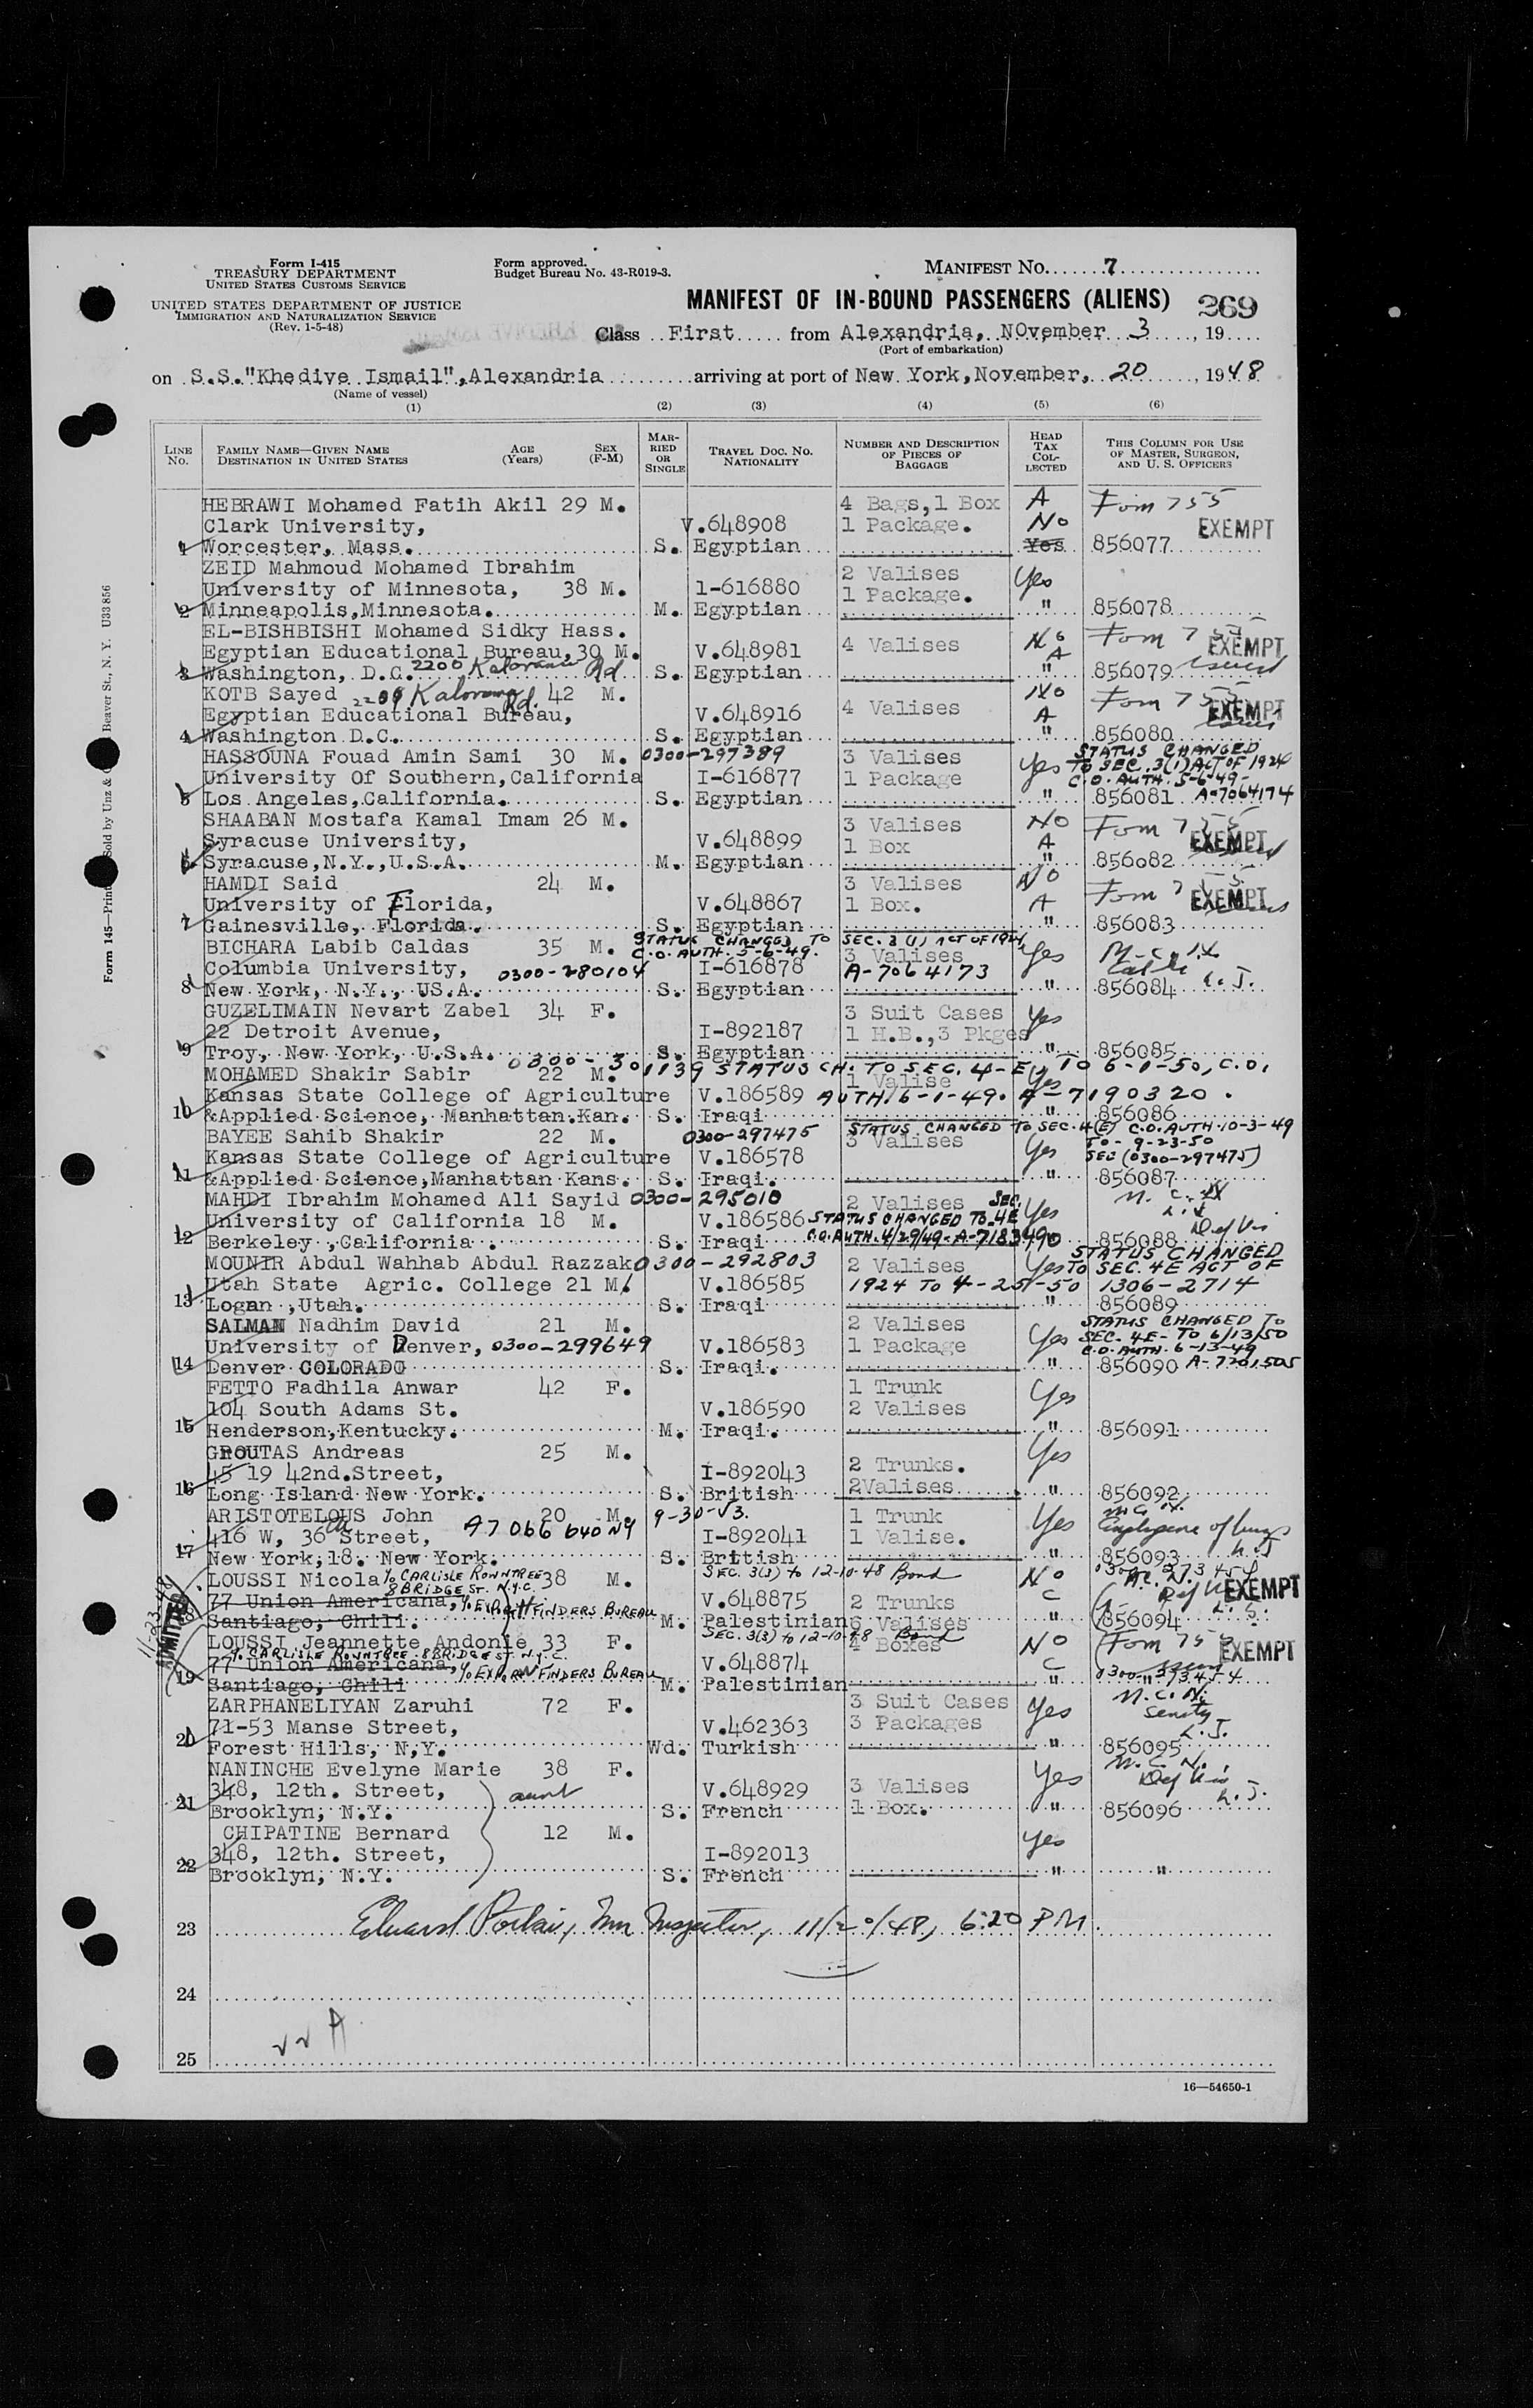 Form I-415
TREASURY DEPARTMENT
UNITED STATES CUSTOMS SERVICE
UNITED STATES DEPARTMENT OF JUSTICE
IMMIGRATION AND NATURALIZATION SERVICE
(Rev. 1-5-48)
Form approved.
Budget Bureau No. 43-R019-3.
MANIFEST No. 7
MANIFEST OF IN-BOUND PASSENGERS (ALIENS) 269
Class First from Alexandria, NOvember 3, 19
(Port of embarkation)
on S.S."Khedive Ismail",Alexandria arriving at port of New York,November, 20, 1948
(Name of vessel)
(1) (2) (3) (4) (5) (6)
LINE No. FAMILY NAME—GIVEN NAME DESTINATION IN UNITED STATES AGE (Years) SEX (F-M) MARRIED OR SINGLE TRAVEL DOC. NO. NATIONALITY NUMBER AND DESCRIPTION OF PIECES OF BAGGAGE HEAD TAX COLLECTED THIS COLUMN FOR USE OF MASTER, SURGEON, AND U. S. OFFICERS
HEBRAWI Mohamed Fatih Akil 29 M. 4 Bags,1 Box A Form 755
Clark University, V.648908 1 Package. No EXEMPT
1 Worcester, Mass. S. Egyptian Yes 856077
ZEID Mahmoud Mohamed Ibrahim 2 Valises Yes
University of Minnesota, 38 M. 1-616880 1 Package.
2 Minneapolis,Minnesota. M. Egyptian " 856078
EL-BISHBISHI Mohamed Sidky Hass. No Form 755
Egyptian Educational Bureau,30 M. V.648981 4 Valises A EXEMPT
3 Washington, D.C. 2200 Kalorama Rd S. Egyptian " 856079 issued
KOTB Sayed 2200 Kalorama Rd. 42 M. 4 Valises No Form 755
Egyptian Educational Bureau, V.648916 A EXEMPT
4 Washington D.C. S. Egyptian " 856080
HASSOUNA Fouad Amin Sami 30 M. 0300-297389 3 Valises STATUS CHANGED
University Of Southern,California I-616877 1 Package Yes TO SEC. 3(1) ACT OF 1924 C.O. AUTH. 5-6-49-
5 Los Angelas,California. S. Egyptian " 856081 A-7064174
SHAABAN Mostafa Kamal Imam 26 M. 3 Valises No Form 755
Syracuse University, V.648899 1 Box A EXEMPT
6 Syracuse,N.Y.,U.S.A. M. Egyptian " 856082
HAMDI Said 24 M. 3 Valises No Form
University of Florida, V.648867 1 Box. A EXEMPT
7 Gainesville, Florida. S. Egyptian " 856083
STATUS CHANGED TO SEC. 3 (1) ACT OF 1924
BICHARA Labib Caldas 35 M. C.O. AUTH. 5-6-49. 3 Valises Yes
Columbia University, 0300-280104 I-616878 A-7064173
8 New York, N.Y., US.A. S. Egyptian " 856084 L.J.
GUZELIMAIN Nevart Zabel 34 F. 3 Suit Cases Yes
22 Detroit Avenue, I-892187 1 H.B.,3 Pkges
9 Troy, New York, U.S.A. S. Egyptian " 856085
0300-301139 STATUS CH. TO SEC. 4-E, TO 6-1-50, C.O.
MOHAMED Shakir Sabir 22 M. 1 Valise Yes
Kansas State College of Agriculture V.186589 AUTH. 6-1-49. A-7190320.
10 &Applied Science, Manhattan.Kan. S. Iraqi " 856086
STATUS CHANGED TO SEC. 4(E) C.O. AUTH. 10-3-49
BAYEE Sahib Shakir 22 M. 0300-297475 3 Valises TO - 9-23-50
Kansas State College of Agriculture V.186578 Yes SEC (0300-297475)
11 &Applied Science,Manhattan Kans. S. Iraqi. " 856087
MAHDI Ibrahim Mohamed Ali Sayid 0300-295010 2 Valises SEC.
University of California 18 M. V.186586 STATUS CHANGED TO 4E Yes
12 Berkeley ,California . S. Iraqi C.O. AUTH. 4/29/49-A-7183490 856088
MOUNIR Abdul Wahhab Abdul Razzak 0300-292803 2 Valises Yes STATUS CHANGED TO SEC. 4E ACT OF
Utah State Agric. College 21 M. V.186585 1924 TO 4-25-50 1306-2714
13 Logan ,Utah. S. Iraqi " 856089
SALMAN Nadhim David 21 M. 2 Valises STATUS CHANGED TO
University of Denver, 0300-299649 V.186583 1 Package Yes SEC. 4E- TO 6/13/50 C.O. AUTH. 6-13-49
14 Denver COLORADO S. Iraqi. " 856090 A-7201505
FETTO Fadhila Anwar 42 F. 1 Trunk Yes
104 South Adams St. V.186590 2 Valises
15 Henderson,Kentucky. M. Iraqi. " 856091
GROUTAS Andreas 25 M. Yes
45 19 42nd.Street, I-892043 2 Trunks.
16 Long Island New York. S. British 2Valises " 856092
ARISTOTELOUS John 20 M. 1 Trunk Yes
416 W, 36th Street, A7 066 640 NY I-892041 1 Valise.
17 New York,18. New York. S. British " 856093
LOUSSI Nicola % CARLISLE ROWNTREE 8 BRIDGE ST. N.Y.C. 38 M. SEC. 3(3) to 12-10-48 Bond No
77 Union Americana, V.648875 2 Trunks C EXEMPT
Santiago, Chili. % EXPORT FINDERS BUREAU M. Palestinian 6 Valises " 856094
ADMITTED 11-23-48
LOUSSI Jeannette Andonie 33 F. SEC. 3(3) to 12-10-48 Bond 4 Boxes No Form 755
% CARLISLE ROWNTREE 8 BRIDGE ST. N.Y.C.
77 Union Americana, V.648874 C EXEMPT
19 Santiago, Chili % EXPORT FINDERS BUREAU M. Palestinian "
ZARPHANELIYAN Zaruhi 72 F. 3 Suit Cases Yes
71-53 Manse Street, V.462363 3 Packages Senity L.J.
20 Forest Hills, N,Y. Wd. Turkish " 856095
NANINCHE Evelyne Marie 38 F. Yes
348, 12th. Street, aunt V.648929 3 Valises L.J.
21 Brooklyn, N.Y. S. French 1 Box. " 856096
CHIPATINE Bernard 12 M. Yes
348, 12th. Street, I-892013
22 Brooklyn, N.Y. S. French " "
23 11/20/48, 6:20 PM.
24
25
16—54650-1